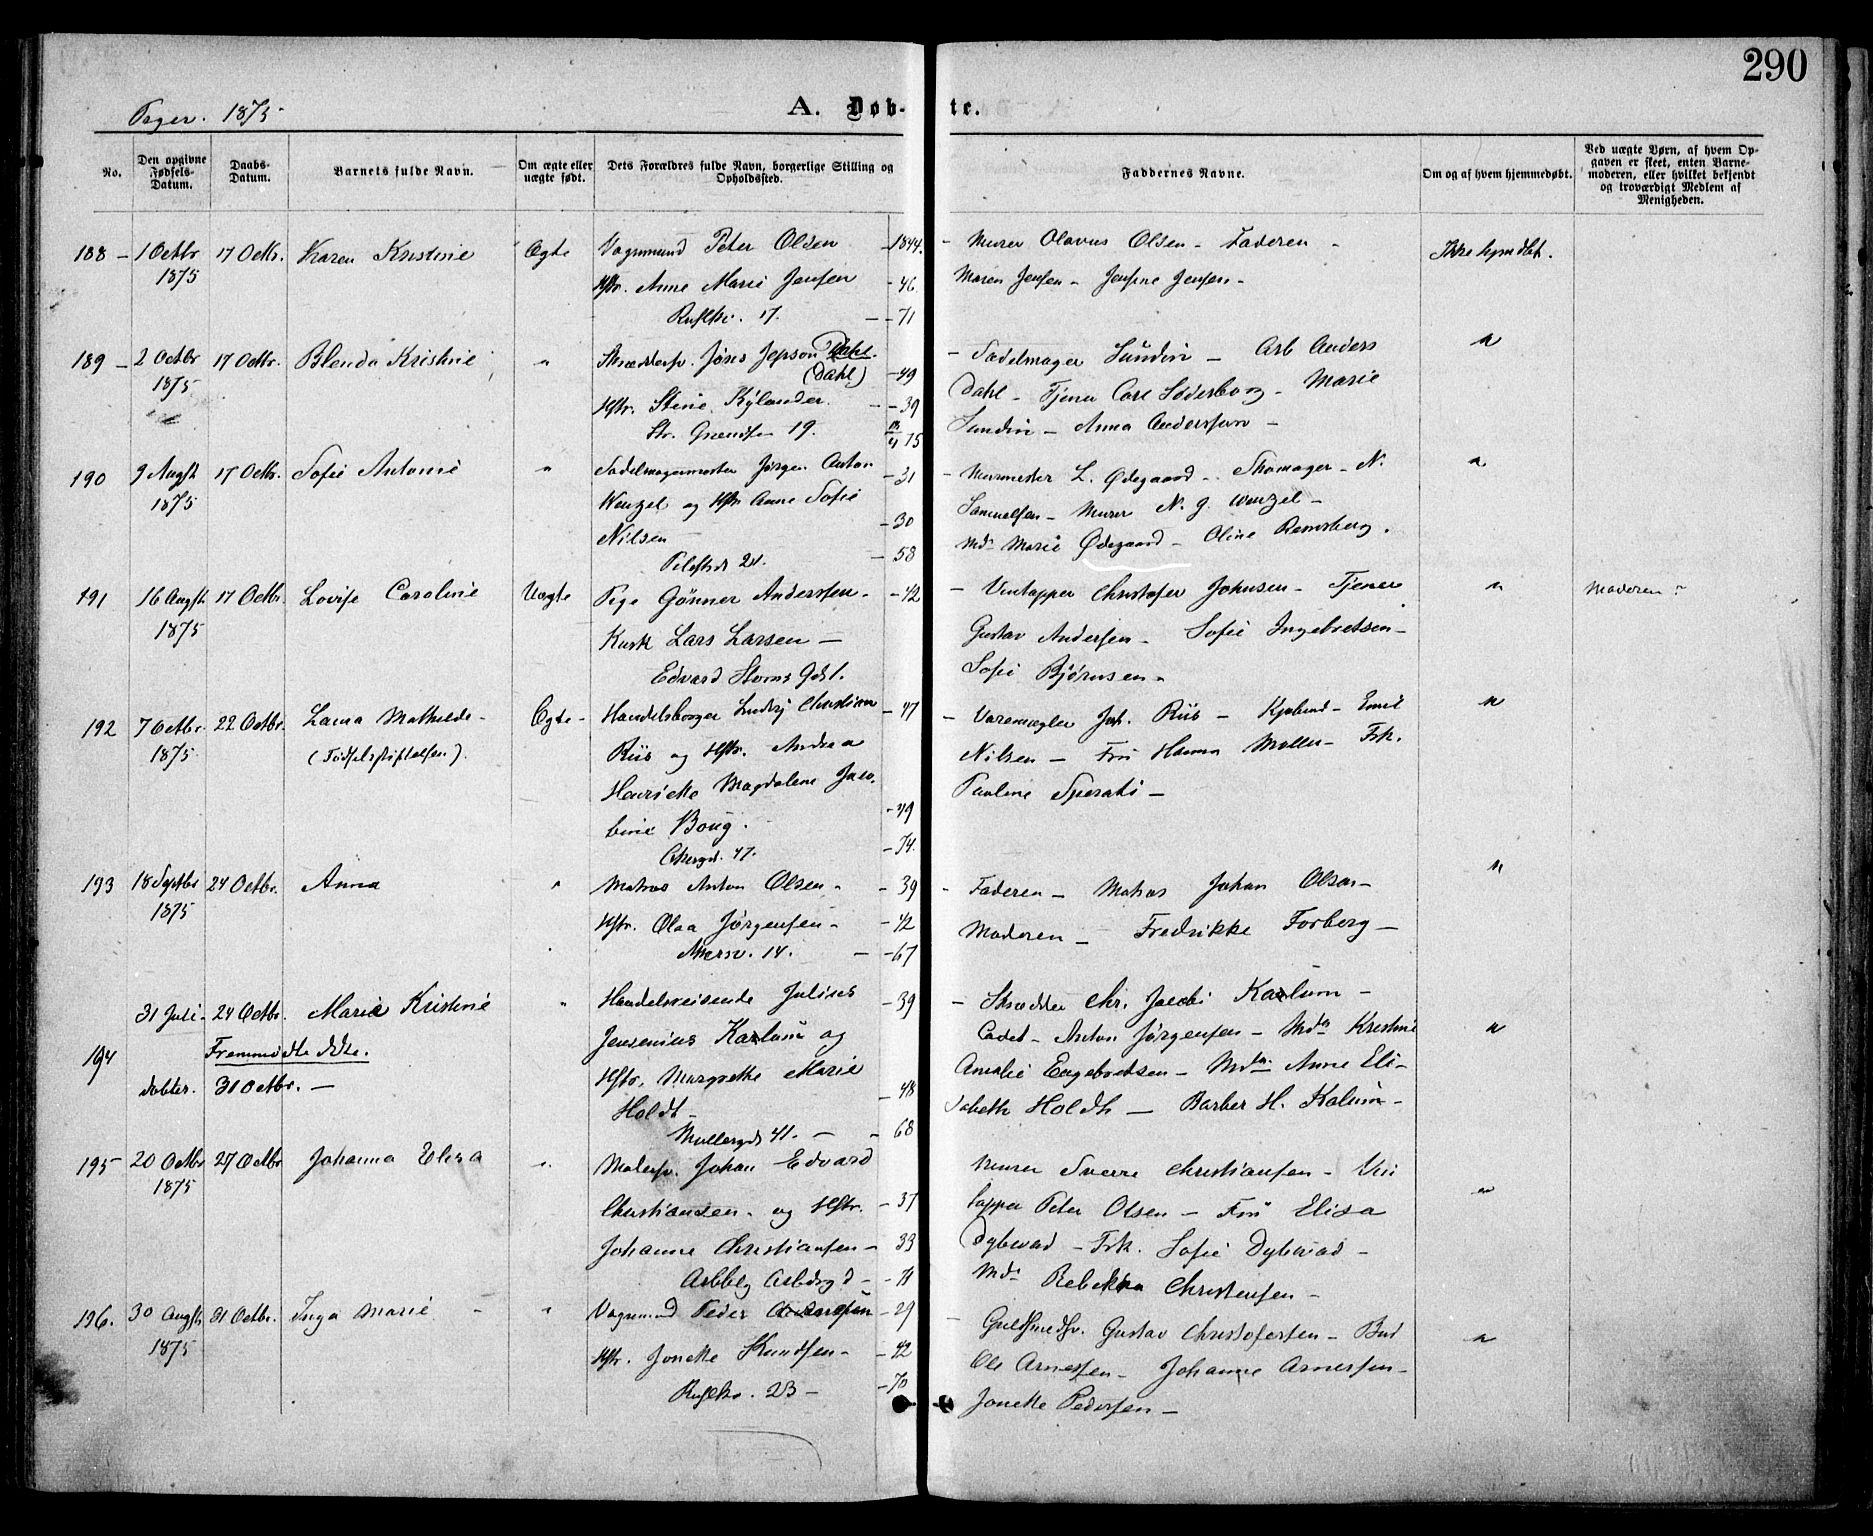 290
Piger. 1875
A. Døb- te.
No.
Den opgivne Fødsels-Datum.
Daabs-Datum.
Barnets fulde Navn.
Om ægte eller uægte født.
Dets Forældres fulde Navn, borgerlige Stilling og Opholdssted.
Faddernes Navne.
Om og af hvem hjemmedøbt.
Ved uægte Børn, af hvem Op-
gaven er skeet, enten Barne-
moderen, eller hvilket bekjendt
og troværdigt Medlem af
Menigheden.
188 - 1 Octbr 17 Octbr. Karen Kristine Ægte Vognmand Peter Olsen -1844. - Murer Olavus Olsen - Faderen -
1875 Hstr. Anne Marie Jensen -46 Maren Jensen - Jensine Jensen -
17. -71 Ikke hjmdbt.
189 - 2 Octbr 17 Octbr. Blenda Kristine " Jøns Jepson Dahl. - Sadelmager Sundin - Arb Anders "
1875 (Dahl) -49 Dahl - Tjener Carl Søderborg - Marie
Hstr. Stine Kylander -39 Sundin - Anna Anderssen -
St. Grændsen 19. 75
190 9 Augst 17 Octbr. Sofie Antonie " Sadelmagermester Jørgen Anton -31 - Murmester L. Ødegaard - Skomager - N. "
1875 Wenzel og Hstr Anne Sofie -30 Samuelsen - Murer N. G. Wenzel -
Nilsen Mdm Marie Ødegaard - Oline Ramsberg.
Pilestrdt 24. -58
191 16 Augst. 17 Octbr. Lovise Caroline Uægte Pige Gønner Anderssen - -42 - Vintapper Christofer Johnsen - Tjener " Moderen -
1875 Kusk Lars Larsen - Gustav Andersen - Sofie Ingebretsen -
Edvard Storms Gd 1. Sofie Bjørnsen -
192 7 Octbr. 22 Octbr. Laura Mathilde - Ægte - Handelsborger Ludvig Christian -47 - Varemægler Joh. Riis - Kjøbmd - Emil "
1875 (Fødselsstiftelsen). Riis og Hstr. Andrea Nilsen - Fru Hanna Møller - Frk.
Henriette Magdalene Jaco- Pauline Sperati -
bine Boug. -49
Akersgd. 47. -74.
193 18 Septbr 24 Octbr. Anna " Matros Anton Olsen - -39 - Faderen - Matros Johan Olsen - "
1875 Hstr. Olaa Jørgensen - -42 Moderen - Fredrikke Forberg -
Akersv. 14. -67
31 Juli - 24 Octbr. Marie Kristine " Handelsreisende Julius -39 - Skrædder Chr. Jacobi Karlum -
194 Fremmødte ikke. Jensenius Karlum og Cadet - Anton Jørgensen - Mdm Kristine "
døbtes. 31 Octbr. - Hstr. Margrethe Marie -48 Amalie Engebretsen - Mdm Anne Eli-
Holdt - sabeth Holdth - Barber H. Kalum -
Møllergd 41. - -68
195 20 Octbr 27 Octbr Johanna Elisa " Malersv. Johan Edvard Murer Sverre Christiansen - Vin
1875 Christiansen - og Hstr. -37 tapper Peter Olsen - Fru Elisa "
Johanne Christiansen - 33 Dybwad - Frk. Sofie Dybwad -
-71 Mdm Rebekka Christensen -
196. 30 Augst 31 Octbr. Inga Marie - " Vognmand Peder Andersen -29 - Guldsmedsv. Gustav Christofersen - Bud "
1875 Hstr. Jonette Knudsen - -42 Ole Arnesen - Johanne Arnessen -
23 - -70 Jonette Pedersen -